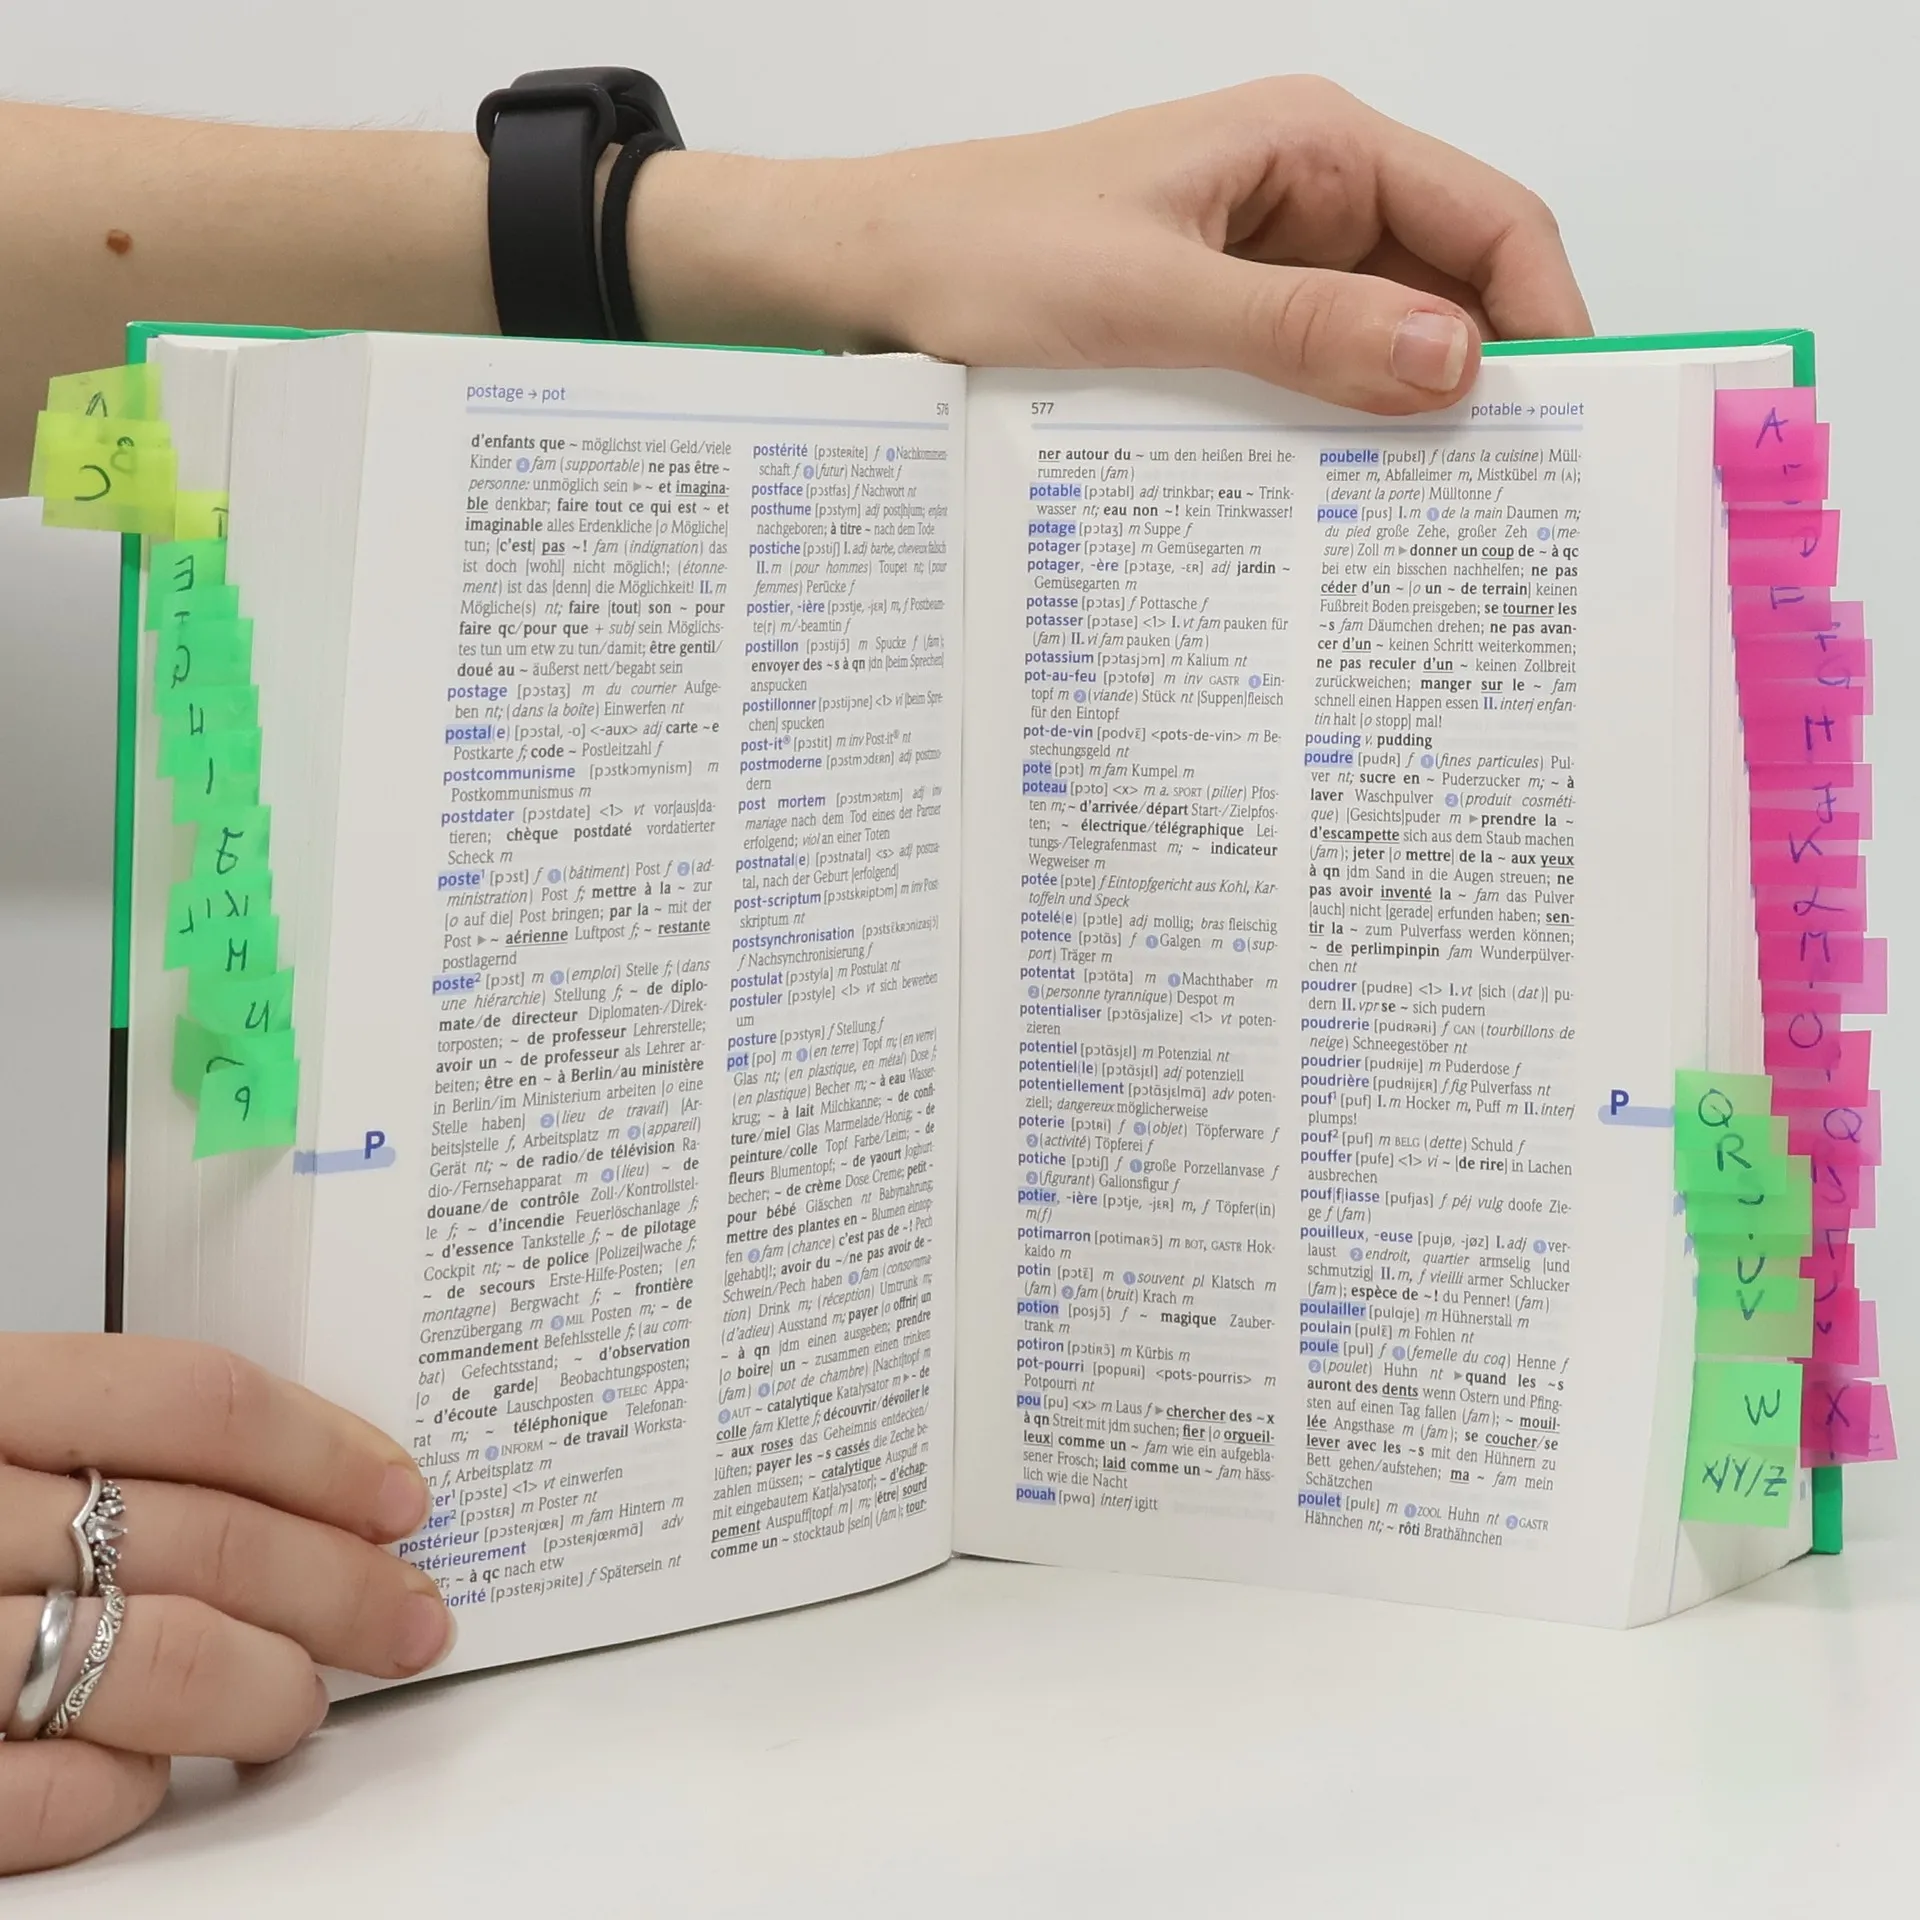 postage → pot
576
d'enfants que ~ möglichst viel Geld/viele
Kinder ❹ fam (supportable) ne pas être ~
personne: unmöglich sein ▶ ~ et imagina-
ble denkbar; faire tout ce qui est ~ et
imaginable alles Erdenkliche [o Mögliche]
tun; [c'est] pas ~! fam (indignation) das
ist doch [wohl] nicht möglich!; (étonne-
ment) ist das [denn] die Möglichkeit! II. m
Mögliche(s) nt; faire [tout] son ~ pour
faire qc/pour que + subj sein Möglichs-
tes tun um etw zu tun/damit; être gentil/
doué au ~ äußerst nett/begabt sein
postage [pɔstaʒ] m du courrier Aufge-
ben nt; (dans la boîte) Einwerfen nt
postal(e) [pɔstal, -o] <-aux> adj carte ~e
Postkarte f; code ~ Postleitzahl f
postcommunisme [pɔstkɔmynism] m
Postkommunismus m
postdater [pɔstdate] <1> vt vor|aus|da-
tieren; chèque postdaté vordatierter
Scheck m
poste¹ [pɔst] f ❶ (bâtiment) Post f ❷ (ad-
ministration) Post f; mettre à la ~ zur
[o auf die] Post bringen; par la ~ mit der
Post ▶ ~ aérienne Luftpost f; ~ restante
postlagernd
poste² [pɔst] m ❶ (emploi) Stelle f; (dans
une hiérarchie) Stellung f; ~ de diplo-
mate/de directeur Diplomaten-/Direk-
torposten; ~ de professeur Lehrerstelle;
avoir un ~ de professeur als Lehrer ar-
beiten; être en ~ à Berlin/au ministère
in Berlin/im Ministerium arbeiten [o eine
Stelle haben] ❷ (lieu de travail) [Ar-
beits]stelle f, Arbeitsplatz m ❸ (appareil)
Gerät nt; ~ de radio/de télévision Ra-
dio-/Fernsehapparat m ❹ (lieu) ~ de
douane/de contrôle Zoll-/Kontrollstel-
le f; ~ d'incendie Feuerlöschanlage f;
~ d'essence Tankstelle f; ~ de pilotage
Cockpit nt; ~ de police [Polizei]wache f;
~ de secours Erste-Hilfe-Posten; (en
montagne) Bergwacht f; ~ frontière
Grenzübergang m ❺ MIL Posten m; ~ de
commandement Befehlsstelle f; (au com-
bat) Gefechtsstand; ~ d'observation
[o de garde] Beobachtungsposten;
~ d'écoute Lauschposten ❻ TELEC Appa-
rat m; ~ téléphonique Telefonan-
schluss m ❼ INFORM ~ de travail Worksta-
n f, Arbeitsplatz m
er¹ [pɔste] <1> vt einwerfen
ster² [pɔstɛʀ] m Poster nt
postérieur [pɔsteʀjœʀ] m fam Hintern m
stérieurement [pɔsteʀjœʀmã] adv
er; ~ à qc nach etw
iorité [pɔsteʀjɔʀite] f Spätersein nt
postérité [pɔsteʀite] f ❶ Nachkommen-
schaft f ❷ (futur) Nachwelt f
postface [pɔstfas] f Nachwort nt
posthume [pɔstym] adj post[h]um; enfant
nachgeboren; à titre ~ nach dem Tode
postiche [pɔstiʃ] I. adj barbe, cheveux falsch
II. m (pour hommes) Toupet nt; (pour
femmes) Perücke f
postier, -ière [pɔstje, -jɛʀ] m, f Postbeam-
te(r) m/-beamtin f
postillon [pɔstijɔ̃] m Spucke f (fam);
envoyer des ~s à qn jdn [beim Sprechen]
anspucken
postillonner [pɔstijɔne] <1> vi [beim Spre-
chen] spucken
post-it® [pɔstit] m inv Post-it® nt
postmoderne [pɔstmɔdɛʀn] adj postmo-
dern
post mortem [pɔstmɔʀtɛm] adj inv
mariage nach dem Tod eines der Partner
erfolgend; viol an einer Toten
postnatal(e) [pɔstnatal] <s> adj postna-
tal, nach der Geburt [erfolgend]
post-scriptum [pɔstskʀiptɔm] m inv Post-
skriptum nt
postsynchronisation [pɔstsɛ̃kʀɔnizasjɔ̃]
f Nachsynchronisierung f
postulat [pɔstyla] m Postulat nt
postuler [pɔstyle] <1> vt sich bewerben
um
posture [pɔstyʀ] f Stellung f
pot [po] m ❶ (en terre) Topf m; (en verre)
Glas nt; (en plastique, en métal) Dose f;
(en plastique) Becher m; ~ à eau Wasser-
krug; ~ à lait Milchkanne; ~ de confi-
ture/miel Glas Marmelade/Honig; ~ de
peinture/colle Topf Farbe/Leim; ~ de
fleurs Blumentopf; ~ de yaourt Joghurt-
becher; ~ de crème Dose Creme; petit ~
pour bébé Gläschen nt Babynahrung;
mettre des plantes en ~ Blumen eintop-
fen ❷ fam (chance) c'est pas de ~! Pech
[gehabt]!; avoir du ~/ne pas avoir de ~
Schwein/Pech haben ❸ fam (consomma-
tion) Drink m; (réception) Umtrunk m;
(d'adieu) Ausstand m; payer [o offrir] un
~ à qn jdm einen ausgeben; prendre
[o boire] un ~ zusammen einen trinken
(fam) ❹ (pot de chambre) [Nacht]topf m
❺ AUT ~ catalytique Katalysator m ▶ ~ de
colle fam Klette f; découvrir/dévoiler le
~ aux roses das Geheimnis entdecken/
lüften; payer les ~s cassés die Zeche be-
zahlen müssen; ~ catalytique Auspuff m
mit eingebautem Kat[alysator]; ~ d'échap-
pement Auspuff[topf m] m; [être] sourd
comme un ~ stocktaub [sein] (fam); tour-
577
potable → poulet
ner autour du ~ um den heißen Brei he-
rumreden (fam)
potable [pɔtabl] adj trinkbar; eau ~ Trink-
wasser nt; eau non ~! kein Trinkwasser!
potage [pɔtaʒ] m Suppe f
potager [pɔtaʒe] m Gemüsegarten m
potager, -ère [pɔtaʒe, -ɛʀ] adj jardin ~
Gemüsegarten m
potasse [pɔtas] f Pottasche f
potasser [pɔtase] <1> I. vt fam pauken für
(fam) II. vi fam pauken (fam)
potassium [pɔtasjɔm] m Kalium nt
pot-au-feu [pɔtofø] m inv GASTR ❶ Ein-
topf m ❷ (viande) Stück nt [Suppen]fleisch
für den Eintopf
pot-de-vin [podvɛ̃] <pots-de-vin> m Be-
stechungsgeld nt
pote [pɔt] m fam Kumpel m
poteau [pɔto] <x> m a. SPORT (pilier) Pfos-
ten m; ~ d'arrivée/départ Start-/Zielpfos-
ten; ~ électrique/télégraphique Lei-
tungs-/Telegrafenmast m; ~ indicateur
Wegweiser m
potée [pɔte] f Eintopfgericht aus Kohl, Kar-
toffeln und Speck
potelé(e) [pɔtle] adj mollig; bras fleischig
potence [pɔtɑ̃s] f ❶ Galgen m ❷ (sup-
port) Träger m
potentat [pɔtɑ̃ta] m ❶ Machthaber m
❷ (personne tyrannique) Despot m
potentialiser [pɔtɑ̃sjalize] <1> vt poten-
zieren
potentiel [pɔtɑ̃sjɛl] m Potenzial nt
potentiel(le) [pɔtɑ̃sjɛl] adj potenziell
potentiellement [pɔtɑ̃sjɛlmɑ̃] adv poten-
ziell; dangereux möglicherweise
poterie [pɔtʀi] f ❶ (objet) Töpferware f
❷ (activité) Töpferei f
potiche [pɔtiʃ] f ❶ große Porzellanvase f
❷ (figurant) Galionsfigur f
potier, -ière [pɔtje, -jɛʀ] m, f Töpfer(in)
m(f)
potimarron [pɔtimaʀɔ̃] m BOT, GASTR Hok-
kaido m
potin [pɔtɛ̃] m ❶ souvent pl Klatsch m
(fam) ❷ fam (bruit) Krach m
potion [posjɔ̃] f ~ magique Zauber-
trank m
potiron [pɔtiʀɔ̃] m Kürbis m
pot-pourri [popuʀi] <pots-pourris> m
Potpourri nt
pou [pu] <x> m Laus f ▶ chercher des ~x
à qn Streit mit jdm suchen; fier [o orgueil-
leux] comme un ~ fam wie ein aufgebla-
sener Frosch; laid comme un ~ fam häss-
lich wie die Nacht
pouah [pwa] interj igitt
poubelle [pubɛl] f (dans la cuisine) Müll-
eimer m, Abfalleimer m, Mistkübel m (A);
(devant la porte) Mülltonne f
pouce [pus] I. m ❶ de la main Daumen m;
du pied große Zehe, großer Zeh ❷ (me-
sure) Zoll m ▶ donner un coup de ~ à qc
bei etw ein bisschen nachhelfen; ne pas
céder d'un ~ [o un ~ de terrain] keinen
Fußbreit Boden preisgeben; se tourner les
~s fam Däumchen drehen; ne pas avan-
cer d'un ~ keinen Schritt weiterkommen;
ne pas reculer d'un ~ keinen Zollbreit
zurückweichen; manger sur le ~ fam
schnell einen Happen essen II. interj enfan-
tin halt [o stopp] mal!
pouding v. pudding
poudre [pudʀ] f ❶ (fines particules) Pul-
ver nt; sucre en ~ Puderzucker m; ~ à
laver Waschpulver ❷ (produit cosméti-
que) [Gesichts]puder m ▶ prendre la ~
d'escampette sich aus dem Staub machen
(fam); jeter [o mettre] de la ~ aux yeux
à qn jdm Sand in die Augen streuen; ne
pas avoir inventé la ~ fam das Pulver
[auch] nicht [gerade] erfunden haben; sen-
tir la ~ zum Pulverfass werden können;
~ de perlimpinpin fam Wunderpülver-
chen nt
poudrer [pudʀe] <1> I. vt [sich (dat)] pu-
dern II. vpr se ~ sich pudern
poudrerie [pudʀəʀi] f CAN (tourbillons de
neige) Schneegestöber nt
poudrier [pudʀije] m Puderdose f
poudrière [pudʀijɛʀ] f fig Pulverfass nt
pouf¹ [puf] I. m Hocker m, Puff m II. interj
plumps!
pouf² [puf] m BELG (dette) Schuld f
pouffer [pufe] <1> vi ~ [de rire] in Lachen
ausbrechen
pouf[f]iasse [pufjas] f péj vulg doofe Zie-
ge f (fam)
pouilleux, -euse [pujø, -jøz] I. adj ❶ ver-
laust ❷ endroit, quartier armselig [und
schmutzig] II. m, f vieilli armer Schlucker
(fam); espèce de ~! du Penner! (fam)
poulailler [pulɑje] m Hühnerstall m
poulain [pulɛ̃] m Fohlen nt
poule [pul] f ❶ (femelle du coq) Henne f
❷ (poulet) Huhn nt ▶ quand les ~s
auront des dents wenn Ostern und Pfing-
sten auf einen Tag fallen (fam); ~ mouil-
lée Angsthase m (fam); se coucher/se
lever avec les ~s mit den Hühnern zu
Bett gehen/aufstehen; ma ~ fam mein
Schätzchen
poulet [pulɛ] m ❶ ZOOL Huhn nt ❷ GASTR
Hähnchen nt; ~ rôti Brathähnchen
P
P
A
D
F
G
H
J
K
L
M
O
Q
X
Q
R
U
V
W
X/Y/Z